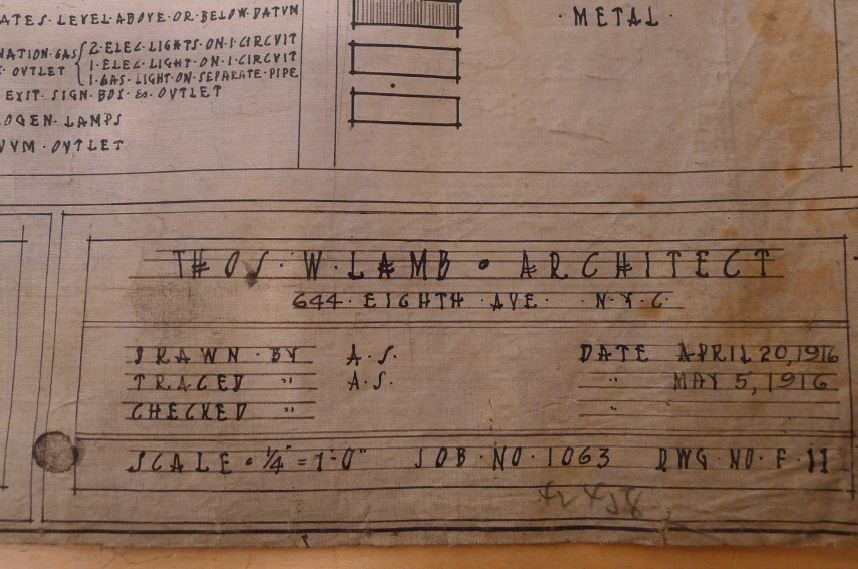 ATES. LEVEL. ABOVE. OR. BELOW. DATVM
NATION. GAS { 2. ELEC. LIGHTS. ON. 1. CIRCVIT
OVTLET 1. ELEC. LIGHT. ON. 1. CIRCVIT
1. GAS. LIGHT. ON. SEPARATE. PIPE
EXIT. SIGN. BOX. & OVTLET
OGEN. LAMPS
VVM. OVTLET
· METAL ·
THOS · W · LAMB · ARCHITECT
644 · EIGHTH · AVE · N · Y · C ·
DRAWN · BY A. S. DATE APRIL 20, 1916
TRACED " A. S. " MAY 5, 1916
CHECKED " "
SCALE · 1/4" = 1'-0" JOB · NO · 1063 DWG · NO · F · 11